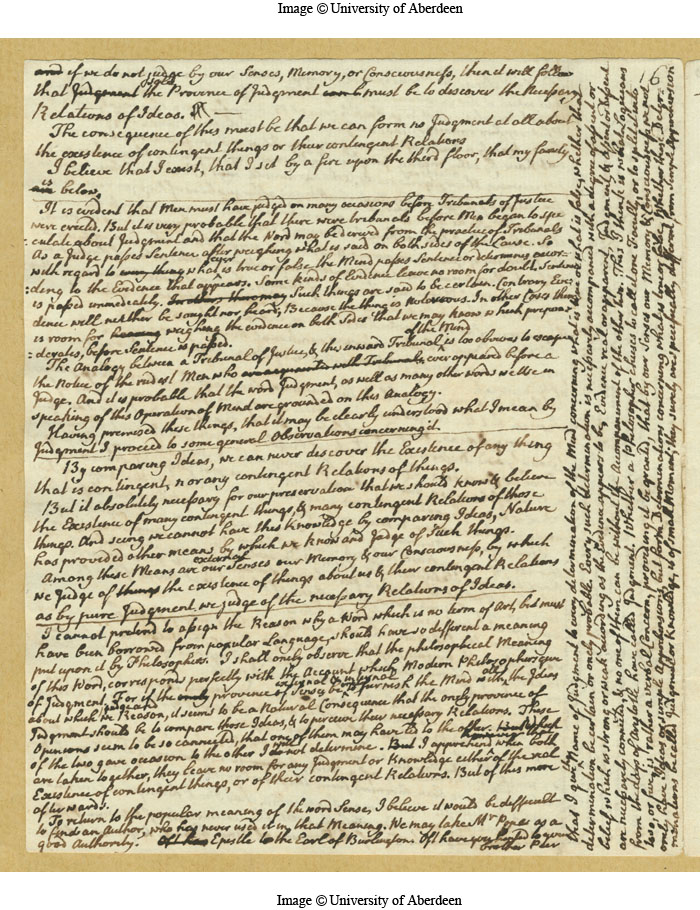 Image © University of Aberdeen
and if we do not judge by our Senses, Memory, or Consciousness, then it will follow
that Judgment the Province of Judgment must be to discover the Necessary
Relations of Ideas.
The consequence of this must be that we can form no Judgment at all about
the existence of contingent things or their contingent Relations
I believe that I exist, that I sit by a fire upon the third floor, that my family
is below.
It is evident that Men must have judged on many occasions before Tribunals of Justice
were erected. But it is very probable that there were tribunals before Men began to spe
culate about Judgment and that the Word may be derived from the practice of Tribunals
As a Judge passes Sentence after weighing what is said on both sides of the Cause. So
with regard to every thing what is true or false, the Mind passes Sentence or determines accor-
:ding to the Evidence that appears. Some kinds of Evidence leave no room for doubt, Sentence
is passed immediately. Such things are said to be certain. Contrary Evi-
dence will neither be sought nor heard, Because the thing is In other Cases there
is room for weighing the evidence on both sides that we may know which
:derates, before Sentence is passed. of the Mind
The Analogy between a Tribunal of Justice, & the inward Tribunal is too obvious to escape
the Notice of the rudest Men who ever appeared before a
Judge. And it is probable that the word Judgment, as well as many other words we use in
speaking of this Operation of Mind are grounded on this Analogy.
Having premised these things, that it may be clearly understood what I mean by
Judgment I proceed to some general Observations concerning it
By comparing Ideas, we can never discover the Existence of any thing
that is contingent, nor any contingent Relations of things.
But it is absolutely necessary for our preservation that we should know & believe
the Existence of many contingent things, & many contingent Relations of those
things. And seing we cannot have this knowledge by comparing Ideas, Nature
has provided other means by which we know and Judge of Such things.
Among these Means are our external Senses our Memory & our Consciousness, by which
we Judge of things the existence of things about us & their contingent Relations
as by pure Judgment we judge of the necessary Relations of Ideas.
I cannot pretend to assign the Reason why a Word which is no term of Art, but must
have been borrowed from popular Language, should have so different a meaning
put upon it by Philosophers. I shall only observe that the philosophical Meaning
of this Word, corresponds perfectly with the Account which Modern Philosophers give
of Judgment. For if the only province of Senses external & internal be to furnish the Mind with the Ideas
about which we judge and Reason, it seems to be a Natural Consequence that the only province of
Judgment should be to compare those Ideas, & to perceive their necessary Relations. These
Opinions seem to be so connected, that one of them may have led to the other.
of the two gave occasion to the other I will not determine. But I apprehend when both
are taken together, they leave no room for any Judgment or Knowledge either of the real
Existence of contingent things, or of their contingent Relations. But of this more
afterwards.
To return to the popular meaning of the word Sense, I believe it would be difficult
to find an Author, who has never used it in that Meaning. We may take Mr Pope as a
good Authority. Epistle to the Earl of Burlington.
6
that I give the Name of Judgment to every determination of the Mind concerning what is true or what is false, whether that
determination be certain or only probable. Every such determination is necessarily accompanied with a degree of assent or
belief which is strong or weak according as the Evidence appears to be,
are necessarily connected, & no one of them can be without the Accompanyment of the other. This I think is what Logicians
from the days of Aristotle have called Judgment. Whether a Philosopher chuses to call it one Faculty or to split it into
two, or is rather a verbal Concern, providing it be granted, that by our Senses our Memory & Consciousness, we not
only have Ideas or simple Apprehensions but form Determinations concerning what is true or false. Whether these Deter-
minations be called Judgment or Knowledge, is of small Moment; they surely are specifically different from simple Apprehension
Image © University of Aberdeen